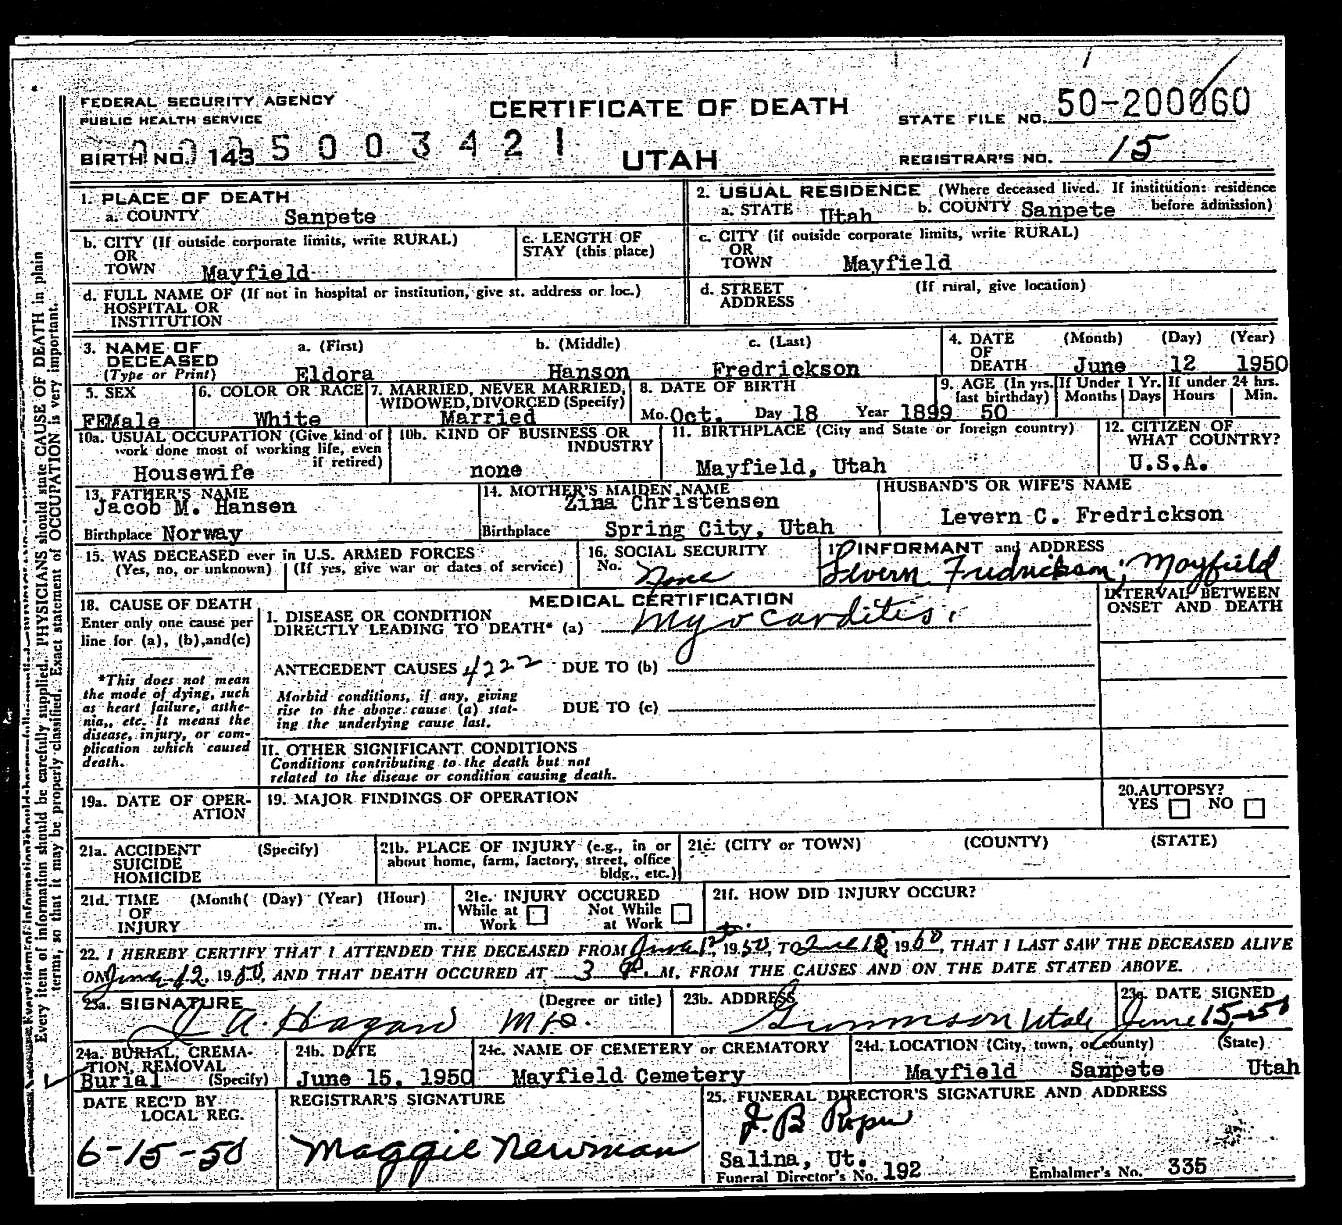 FEDERAL SECURITY AGENCY
PUBLIC HEALTH SERVICE
CERTIFICATE OF DEATH
UTAH
STATE FILE NO. 50-200060
BIRTH NO. 143 5003421
REGISTRAR'S NO. 15
1. PLACE OF DEATH
a. COUNTY Sanpete
2. USUAL RESIDENCE (Where deceased lived. If institution: residence before admission)
a. STATE Utah b. COUNTY Sanpete
b. CITY (If outside corporate limits, write RURAL)
OR
TOWN Mayfield
c. LENGTH OF
STAY (this place)
c. CITY (if outside corporate limits, write RURAL)
OR
TOWN Mayfield
d. FULL NAME OF (If not in hospital or institution, give st. address or loc.)
HOSPITAL OR
INSTITUTION
d. STREET
ADDRESS
(If rural, give location)
3. NAME OF
DECEASED
(Type or Print)
a. (First) b. (Middle) c. (Last)
Eldora Hanson Fredrickson
4. DATE
OF
DEATH
(Month) (Day) (Year)
June 12 1950
5. SEX
FEMale
6. COLOR OR RACE
White
7. MARRIED, NEVER MARRIED,
WIDOWED, DIVORCED (Specify)
Married
8. DATE OF BIRTH
Mo. Oct. Day 18 Year 1899
9. AGE (In yrs. last birthday)
50
If Under 1 Yr.
Months Days
If under 24 hrs.
Hours Min.
10a. USUAL OCCUPATION (Give kind of
work done most of working life, even
if retired)
Housewife
10b. KIND OF BUSINESS OR
INDUSTRY
none
11. BIRTHPLACE (City and State or foreign country)
Mayfield, Utah
12. CITIZEN OF
WHAT COUNTRY?
U.S.A.
13. FATHER'S NAME
Jacob M. Hansen
Birthplace Norway
14. MOTHER'S MAIDEN NAME
Zina Christensen
Birthplace Spring City, Utah
HUSBAND'S OR WIFE'S NAME
Levern C. Fredrickson
15. WAS DECEASED ever in U.S. ARMED FORCES
(Yes, no, or unknown) (If yes, give war or dates of service)
16. SOCIAL SECURITY
No. None
17. INFORMANT and ADDRESS
Levern Fredrickson, Mayfield
18. CAUSE OF DEATH
Enter only one cause per
line for (a), (b), and (c)
*This does not mean
the mode of dying, such
as heart failure, asthe-
nia,, etc. It means the
disease, injury, or com-
plication which caused
death.
MEDICAL CERTIFICATION
I. DISEASE OR CONDITION
DIRECTLY LEADING TO DEATH* (a) Myocarditis.
INTERVAL BETWEEN
ONSET AND DEATH
ANTECEDENT CAUSES 4222 DUE TO (b)
Morbid conditions, if any, giving
rise to the above cause (a) stat-
ing the underlying cause last.
DUE TO (c)
II. OTHER SIGNIFICANT CONDITIONS
Conditions contributing to the death but not
related to the disease or condition causing death.
19a. DATE OF OPER-
ATION
19. MAJOR FINDINGS OF OPERATION
20. AUTOPSY?
YES NO
21a. ACCIDENT
SUICIDE
HOMICIDE
(Specify)
21b. PLACE OF INJURY (e.g., in or
about home, farm, factory, street, office
bldg., etc.)
21c. (CITY or TOWN) (COUNTY) (STATE)
21d. TIME
OF
INJURY
(Month( (Day) (Year) (Hour)
m.
21e. INJURY OCCURED
While at
Work
Not While
at Work
21f. HOW DID INJURY OCCUR?
22. I HEREBY CERTIFY THAT I ATTENDED THE DECEASED FROM June 1st, 1950, TO June 12 1950, THAT I LAST SAW THE DECEASED ALIVE
ON June 12 1950, AND THAT DEATH OCCURED AT 3 P. M, FROM THE CAUSES AND ON THE DATE STATED ABOVE.
23a. SIGNATURE (Degree or title)
A. Hagan MD.
23b. ADDRESS
Gunnison Utah
23c. DATE SIGNED
June 15-50
24a. BURIAL, CREMA-
TION, REMOVAL
Burial (Specify)
24b. DATE
June 15, 1950
24c. NAME OF CEMETERY or CREMATORY
Mayfield Cemetery
24d. LOCATION (City, town, or county) (State)
Mayfield Sanpete Utah
DATE REC'D BY
LOCAL REG.
6-15-50
REGISTRAR'S SIGNATURE
Maggie Newman
25. FUNERAL DIRECTOR'S SIGNATURE AND ADDRESS
J. B Roper
Salina, Ut.
Funeral Director's No. 192
Embalmer's No. 335
Every item of information should be carefully supplied. PHYSICIANS should state CAUSE OF DEATH in plain
terms, so that it may be properly classified. Exact statement of OCCUPATION is very important.